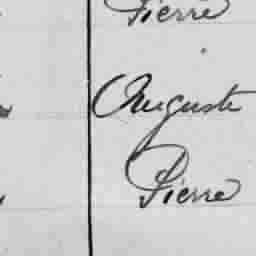 Pierre
Auguste
Pierre